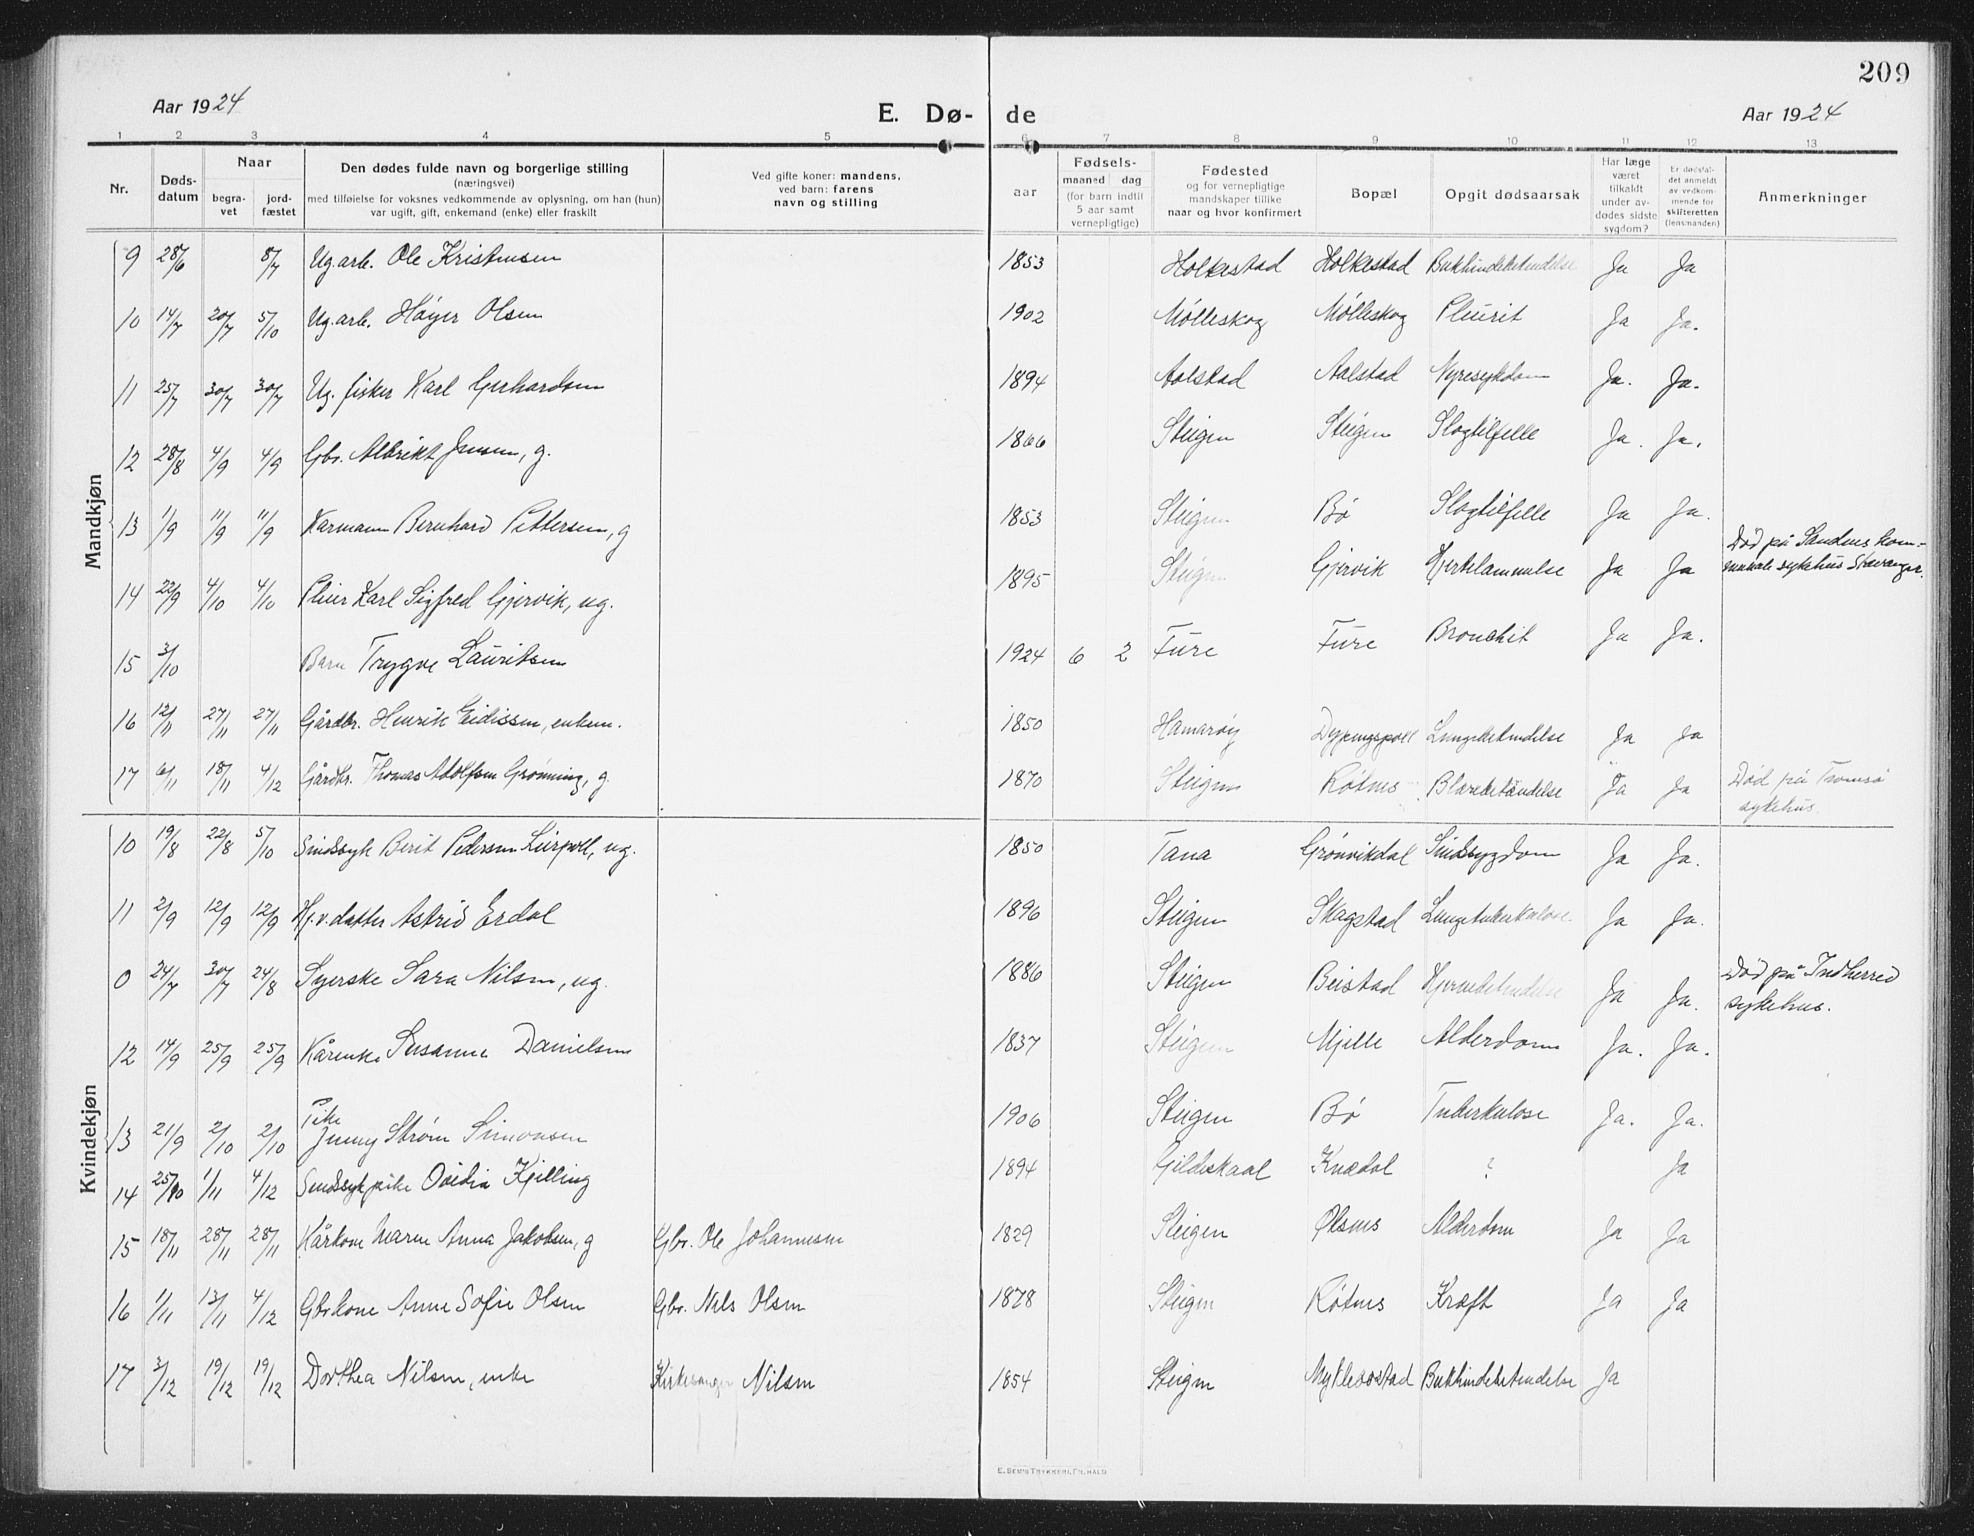 209
Aar 1924 E. Dø- de Aar 1924
1 2 3 4 5 6 7 8 9 10 11 12 13
Nr.
Døds-
datum
Naar
begra-
vet
jord-
fæstet
Den dødes fulde navn og borgerlige stilling
(næringsvei)
med tilføielse for voksnes vedkommende av oplysning, om han (hun)
var ugift, gift, enkemand (enke) eller fraskilt
Ved gifte koner: mandens,
ved barn: farens
navn og stilling
Fødsels-
aar
maaned dag
(for barn indtil
5 aar samt
vernepligtige)
Fødested
og for vernepligtige
mandskaper tillike
naar og hvor konfirmert
Bopæl
Opgit dødsaarsak
Har læge
været
tilkaldt
under av-
dødes sidste
sygdom?
Er dødsfal-
det anmeldt
av vedkom-
mende for
skifteretten
(lensmanden)
Anmerkninger
Mandkjøn
9 28/6 8/7 Ug. arb. Ole Kristensen 1853 Holkestad Holkestad Bukhindebetendelse Ja Ja
10 14/7 20/7 5/10 Ug. arb. Høyer Olsen 1902 Mølleskog Mølleskog Pleurit Ja Ja.
11 25/7 30/7 30/7 Ug. fisker Karl Gerhardsen 1894 Aalstad Aalstad Nyresykdom Ja. Ja.
12 28/8 4/9 4/9 Gbr. Albrikt Jensen, g. 1866 Steigen Steigen Slagtilfelle Ja. Ja.
13 1/9 11/9 11/9 Karmann Bernhard Pettersen, g 1853 Steigen Bø Slagtilfelle Ja Ja.
14 22/9 4/10 4/10 Pleier Karl Sigfred Gjervik, ug. 1895 Steigen Gjervik Hjertelammelse Ja Ja Død på Sandens kom-
munale sykehus Stavanger.
15 3/10 Barn Trygve Lauritsen 1924 6 2 Fure Fure Bronchit Ja Ja.
16 12/11 27/11 27/11 Gårdbr. Henrik Eidissen, enkem. 1850 Hamarøy Dypingspoll Lungebetendelse Ja Ja
17 6/11 18/11 4/12 Gårdbr. Thomas Adolfsen Grønning, g. 1870 Steigen Røtnes Blærebetændelse Ja Ja Død på Tromsø
sykehus.
Kvindekjøn
10 19/8 22/8 5/10 Sindssyk Berit Pedersen Leirpoll, ug. 1850 Tana Grønvikdal Sindssygdom Ja Ja.
11 2/9 12/9 12/9 Hj.v. datter Astrid Erdal 1896 Steigen Skagstad Lungetuberkulose Ja Ja.
0 24/7 30/7 24/8 Syerske Sara Nilsen, ug. 1886 Steigen Beistad Hjernebetendelse Ja Ja. Død på Indherred
sykehus.
12 14/9 25/9 25/9 Kårenke Susanne Danielsen 1837 Steigen Mjelle Alderdom Ja. Ja.
13 21/9 2/10 2/10 Pike
Jenny Strøm Simonsen 1906 Steigen Bø Tuberkulose Ja. Ja.
14 25/10 1/11 4/12 Sindssyk pike Ovidia Kjelling 1894 Gildeskaal Knædal ? Ja
15 18/11 28/11 28/11 Kårkone Maren Anna Jakobsen, g Gbr. Ole Johannesen 1829 Steigen Ølsnes Alderdom Ja Ja
16 1/11 13/11 4/12 Gbrkone Anne Sofie Olsen Gbr. Nils Olsen 1878 Steigen Røtnes Kræft Ja Ja
17 3/12 19/12 19/12 Dorthea Nilsen, enke Kirkesanger Nilsen 1854 Steigen Myklebostad Bukhindebetendelse Ja
E. SEM'S TRYKKERI, FR.HALD